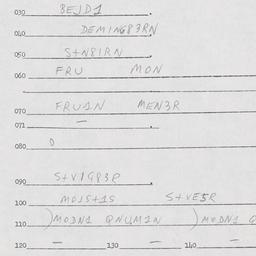 030 8EJD1
040 DEMING83RN
050 S+N81RN
060 FRU MON
070 FRU1N MEN3R
071 —
080 0
090 S+V1G83R
100 MOJS+1S S+VE5R
110 )MODN1 QNUM1N )MODN1 Q
120 — 130 — 140 —